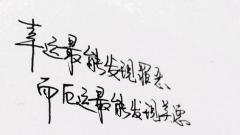 幸运最能发现罪恶
而厄运最能发现美德